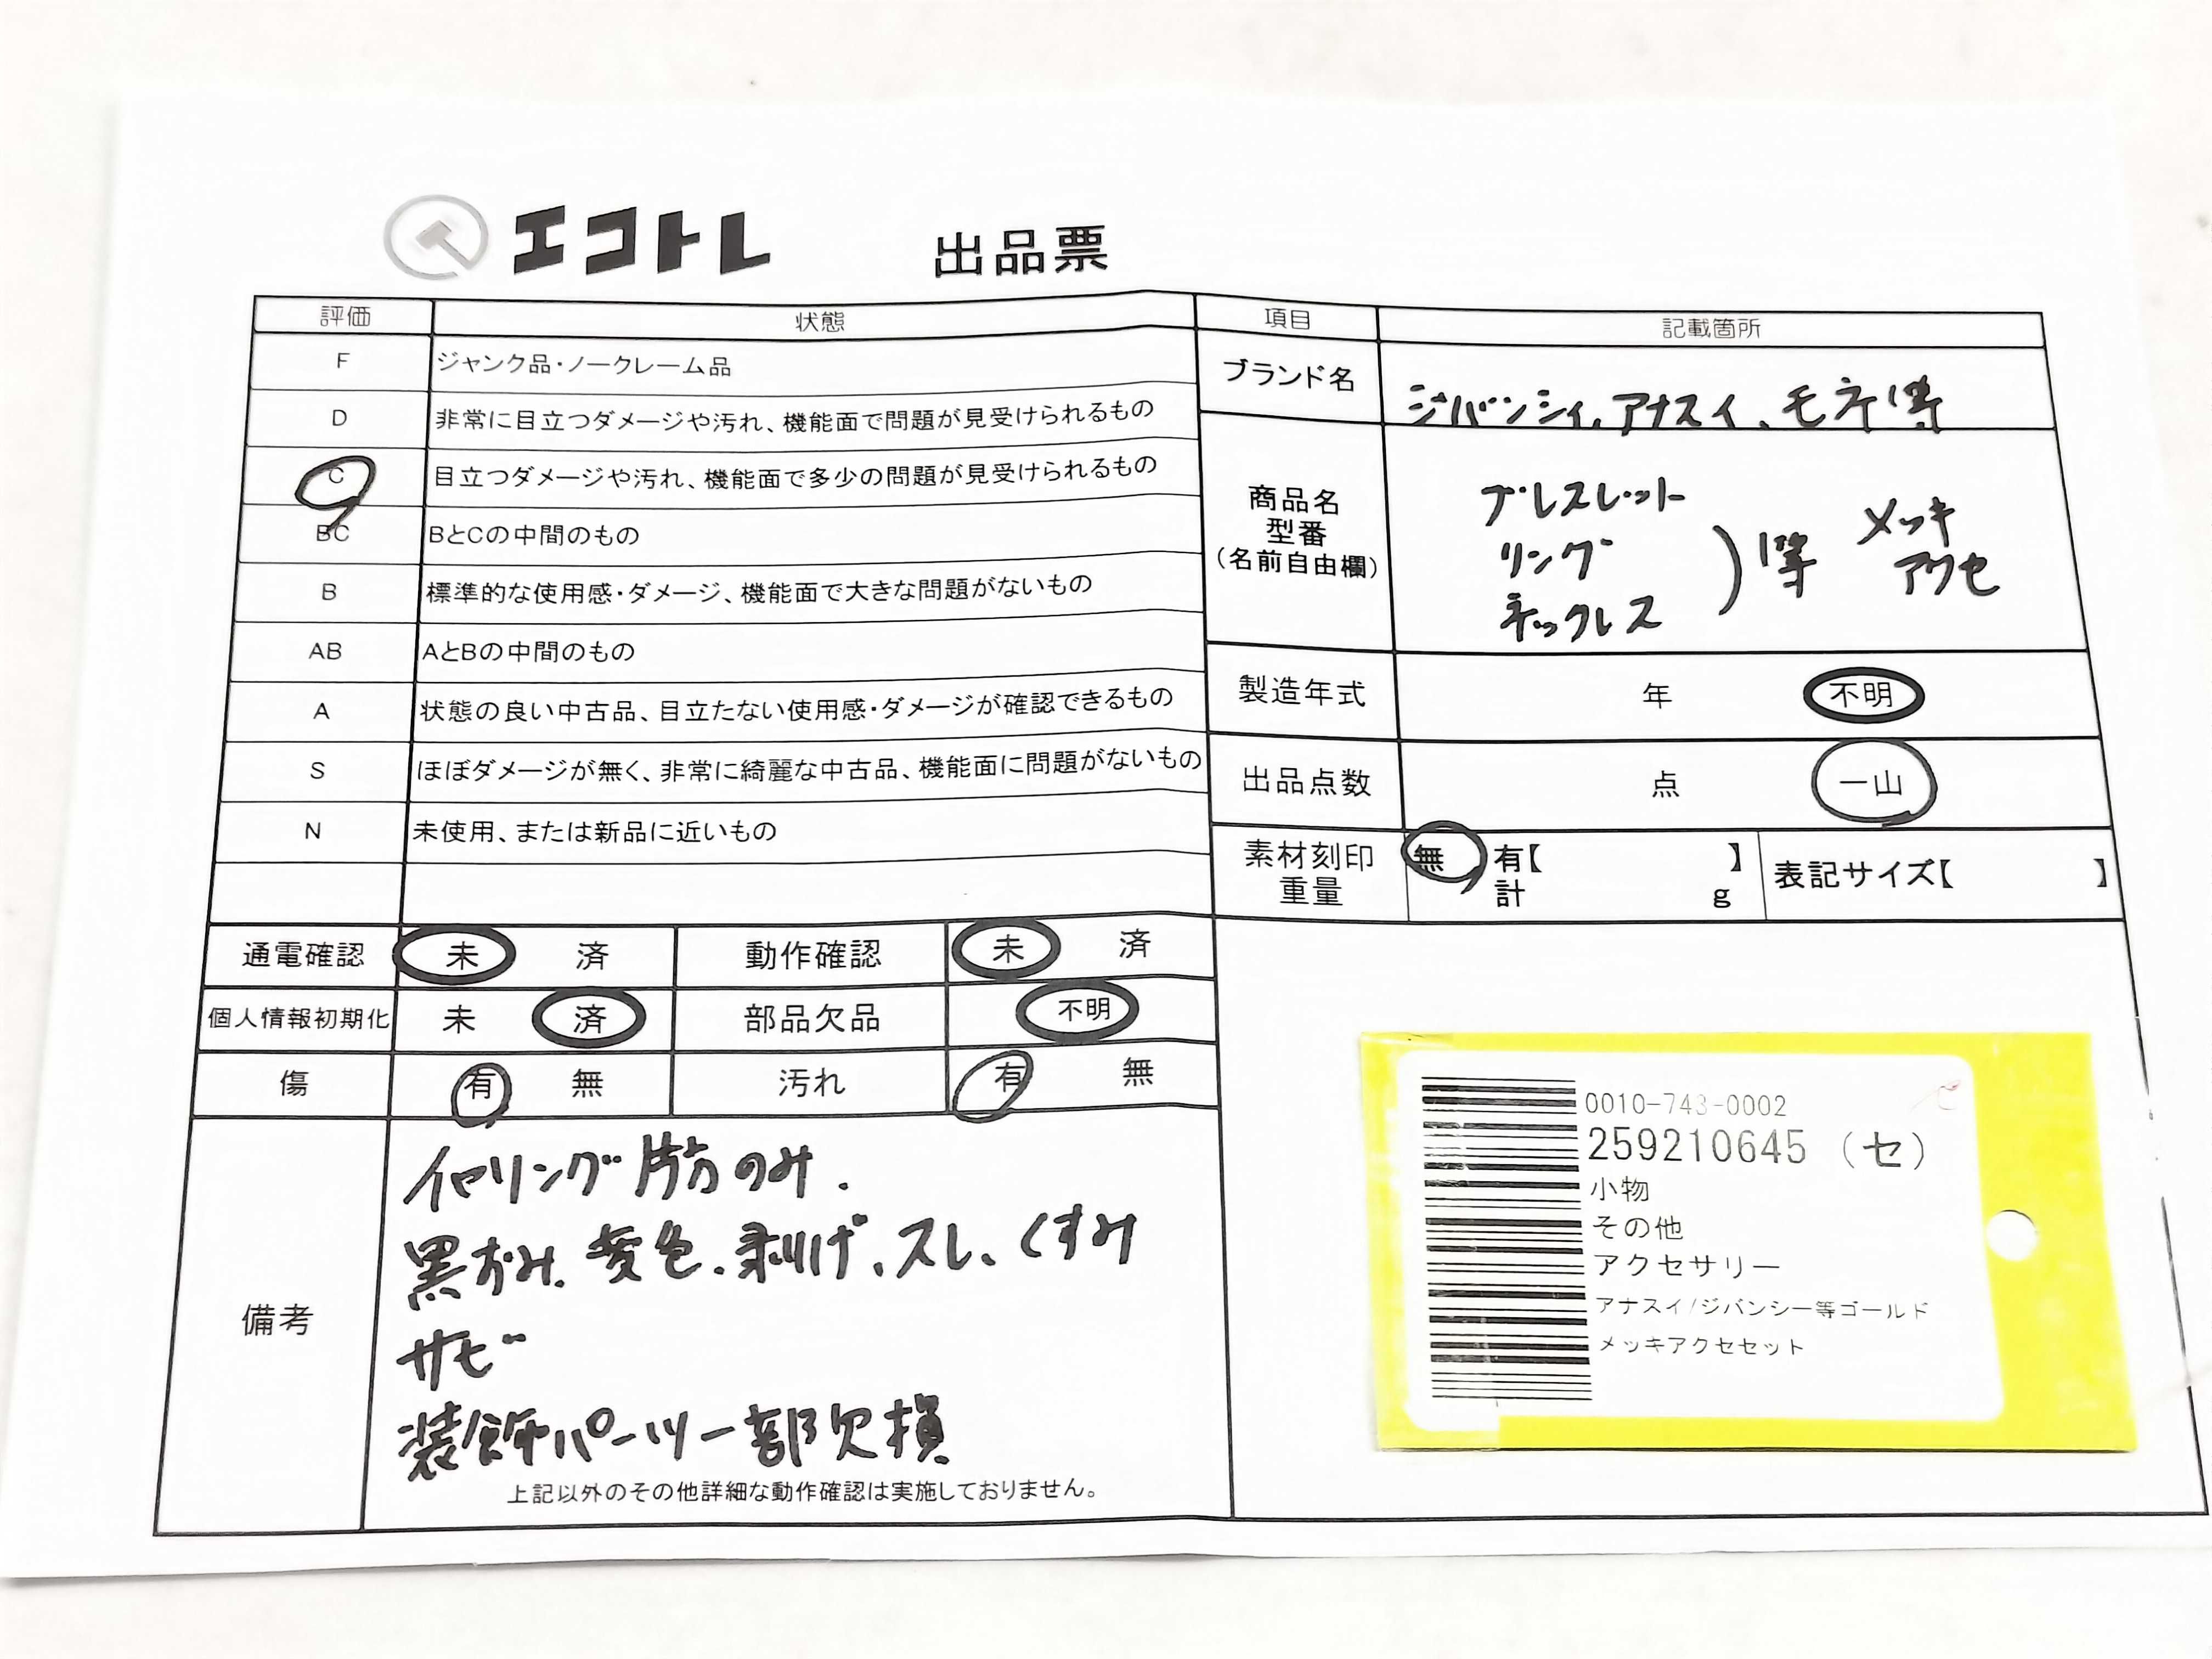 エコトレ 出品票
評価 状態
F ジャンク品・ノークレーム品
D 非常に目立つダメージや汚れ、機能面で問題が見受けられるもの
C 目立つダメージや汚れ、機能面で多少の問題が見受けられるもの
BC BとCの中間のもの
B 標準的な使用感・ダメージ、機能面で大きな問題がないもの
AB AとBの中間のもの
A 状態の良い中古品、目立たない使用感・ダメージが確認できるもの
S ほぼダメージが無く、非常に綺麗な中古品、機能面に問題がないもの
N 未使用、または新品に近いもの
項目 記載箇所
ブランド名 ジバンシィ、アナスイ、モネ等
商品名
型番
(名前自由欄)
ブレスレット
リング
ネックレス
)等 メッキ
アクセ
製造年式 年 不明
出品点数 点 一山
素材刻印 無 有【 】 表記サイズ【 】
重量 計 g
通電確認 未 済 動作確認 未 済
個人情報初期化 未 済 部品欠品 不明
傷 有 無 汚れ 有 無
備考
イヤリング片方のみ.
黒ずみ、変色、剥げ、スレ、くすみ
サビ
装飾パーツ一部欠損
上記以外のその他詳細な動作確認は実施しておりません。
0010-743-0002
259210645 (セ)
小物
その他
アクセサリー
アナスイ/ジバンシー等ゴールド
メッキアクセセット